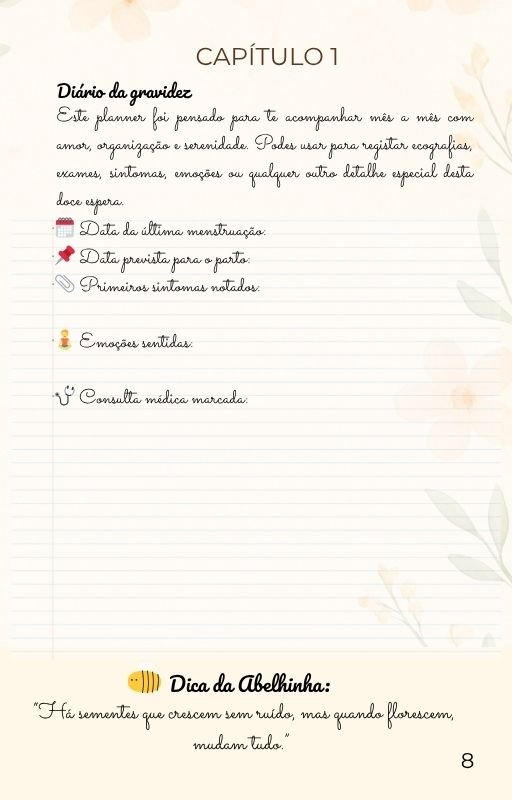 CAPÍTULO 1
Diário da gravidez
Este planner foi pensado para te acompanhar mês a mês com
amor, organização e serenidade. Podes usar para registar ecografias,
exames, sintomas, emoções ou qualquer outro detalhe especial desta
doce espera.
Data da última menstruação:
Data prevista para o parto:
Primeiros sintomas notados:
Emoções sentidas:
Consulta médica marcada:
Dica da Abelhinha:
“Há sementes que crescem sem ruído, mas quando florescem,
mudam tudo.”
8